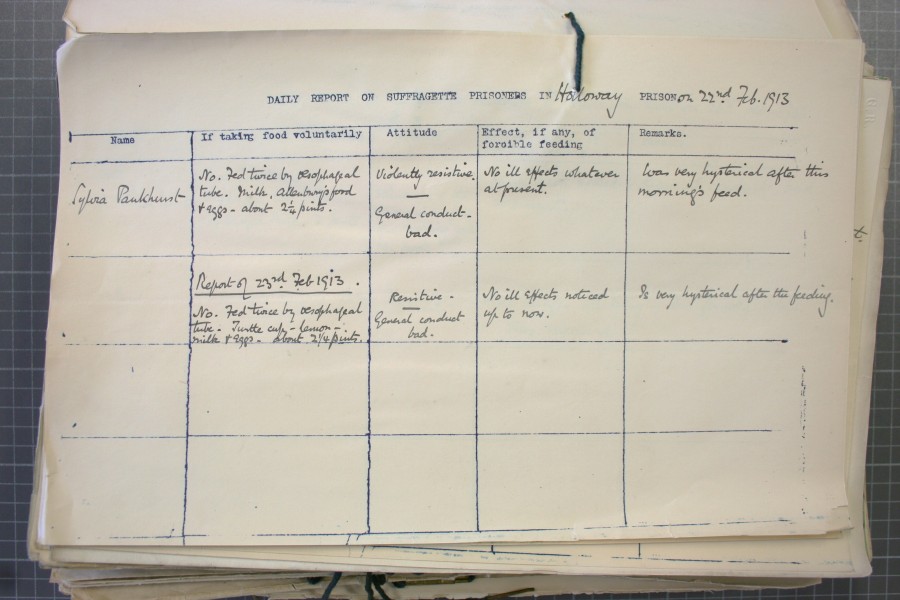 DAILY REPORT ON SUFFRAGETTE PRISONERS IN Holloway PRISON on 22nd Feb. 1913
Name
If taking food voluntarily
Attitude
Effect, if any, of
forcible feeding
Remarks.
Sylvia Pankhurst
No. Fed twice by œsophageal
tube. Milk, Allenbury's food
& eggs - about 2¼ pints.
Violently resistive.
General conduct -
bad.
No ill effects whatever
at present.
Was very hysterical after this
morning's feed.
Report of 23rd Feb 1913.
No. Fed twice by œsophageal
tube - Turtle cup - lemon -
milk & eggs - about 2¼ pints.
Resistive -
General conduct
bad.
No ill effects noticed
up to now.
Is very hysterical after the feeding.